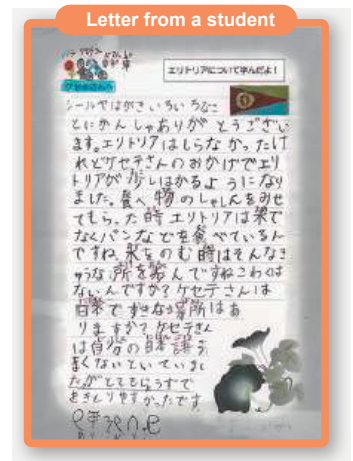 Letter from a student
エリトリアについて学んだよ！
シールやはがきいろいろなこ
とにかんしゃありがとうござい
ます。エリトリアはしらなかったけ
れどケセテさんのおかげでエリ
トリアが少しはかるようになり
ました。食べ物のしゃしんをみせ
てもらった時エリトリアは米で
なくパンなどを食べているん
ですね。水をのむ時はそんなき
ゅうな所を歩んですねこわくは
ないんですか？ケセテさんは
日本ですきな場所はあ
りますか？ケセテさん
は自分の日本語う
まくないといていまし
たがとてもじょうずで
ききとりやすかったです。